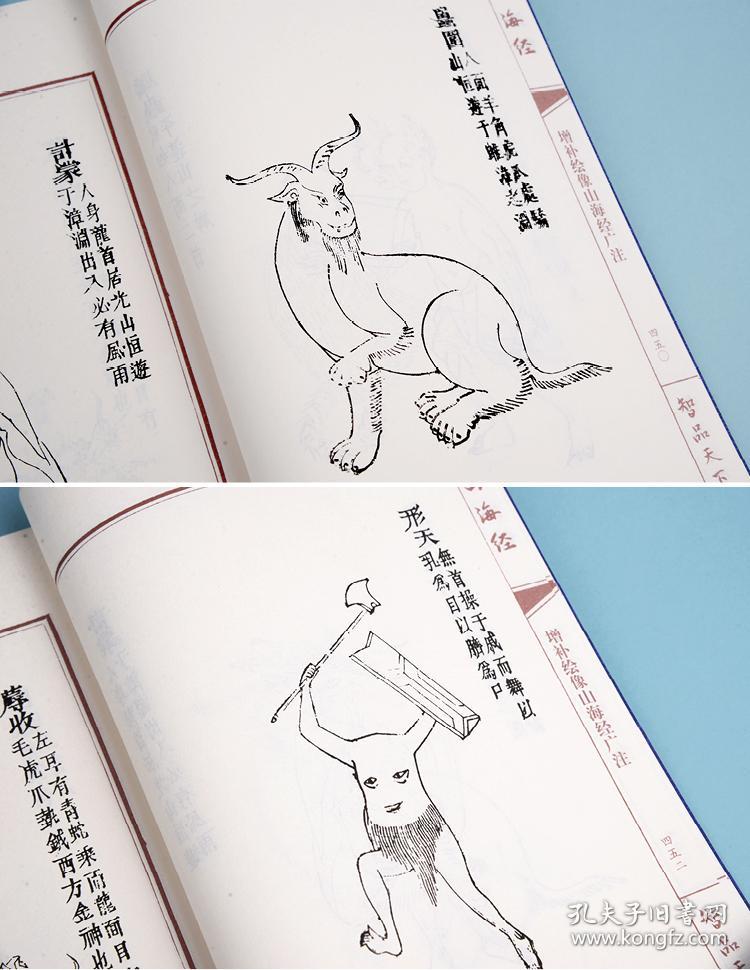 海经
增补绘像山海经广注
四五〇
智品天下
圍
人面羊角虎爪處驕
山恒遊于雎漳之淵
計蒙
人身龍首居光山恒遊
于漳淵出入必有風雨
海经
增补绘像山海经广注
四五二
智品天
形天
無首操于戚而舞以
孔為目以臍為口
蓐收
左耳有青蛇乘兩龍面目
毛虎爪執鉞西方金神也
孔夫子旧书网
www.kongfz.com